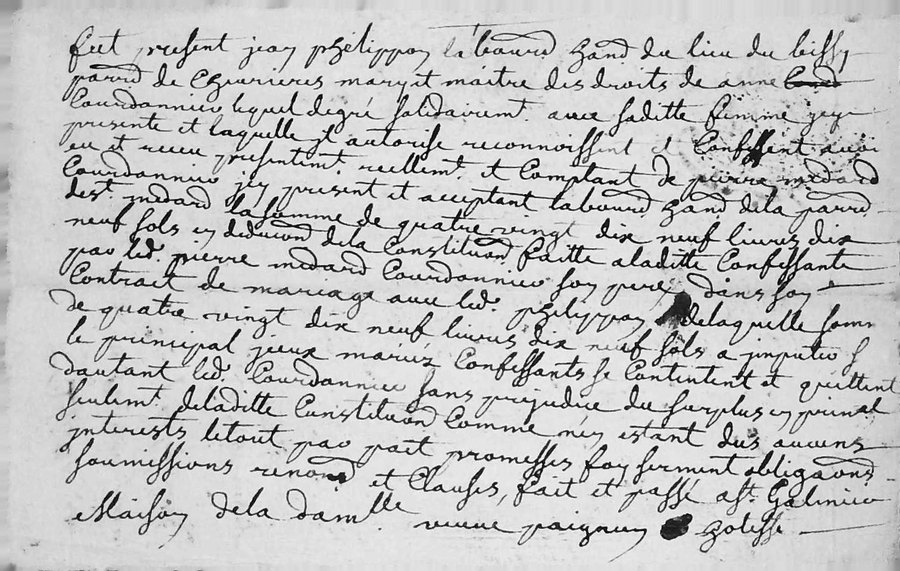 fut present jean phelippon labourd hand du lieu du bissy
parrd de Chevrieres mary et maitre des droits de anne
Courdannier lequel de gré solidairemt. avec saditte femme jcy
presente et laquelle jl autorise reconnoissent et Confessent avoir
eu et receu presentemt. reellemt. et Comptant de pierre medard
Courdannier jcy present et acceptant labourd hand dela parrd
de st. medard la somme de quatre vingt dix neuf livres dix
neuf sols en deducond dela Constituond faitte a laditte Confessante
par led. pierre medard Courdannier son pere dans son
Contrait de mariage avec led. phelippon delaquelle som
de quatre vingt dix neuf livres dix neuf sols a jmputer s
le principal jceux mariés Confessants se Contentent et quittent
dautant led. Courdannier sans prejudice du surplus en prinal
seulemt. deladitte Constituond Comme n'en estant dus aucuns
jnterests letout par pait promesses foy serment obligaond
soumissions renond et Clauses, fait et passé a st. Galmier
Maison dela damlle veuve paignon hotesse